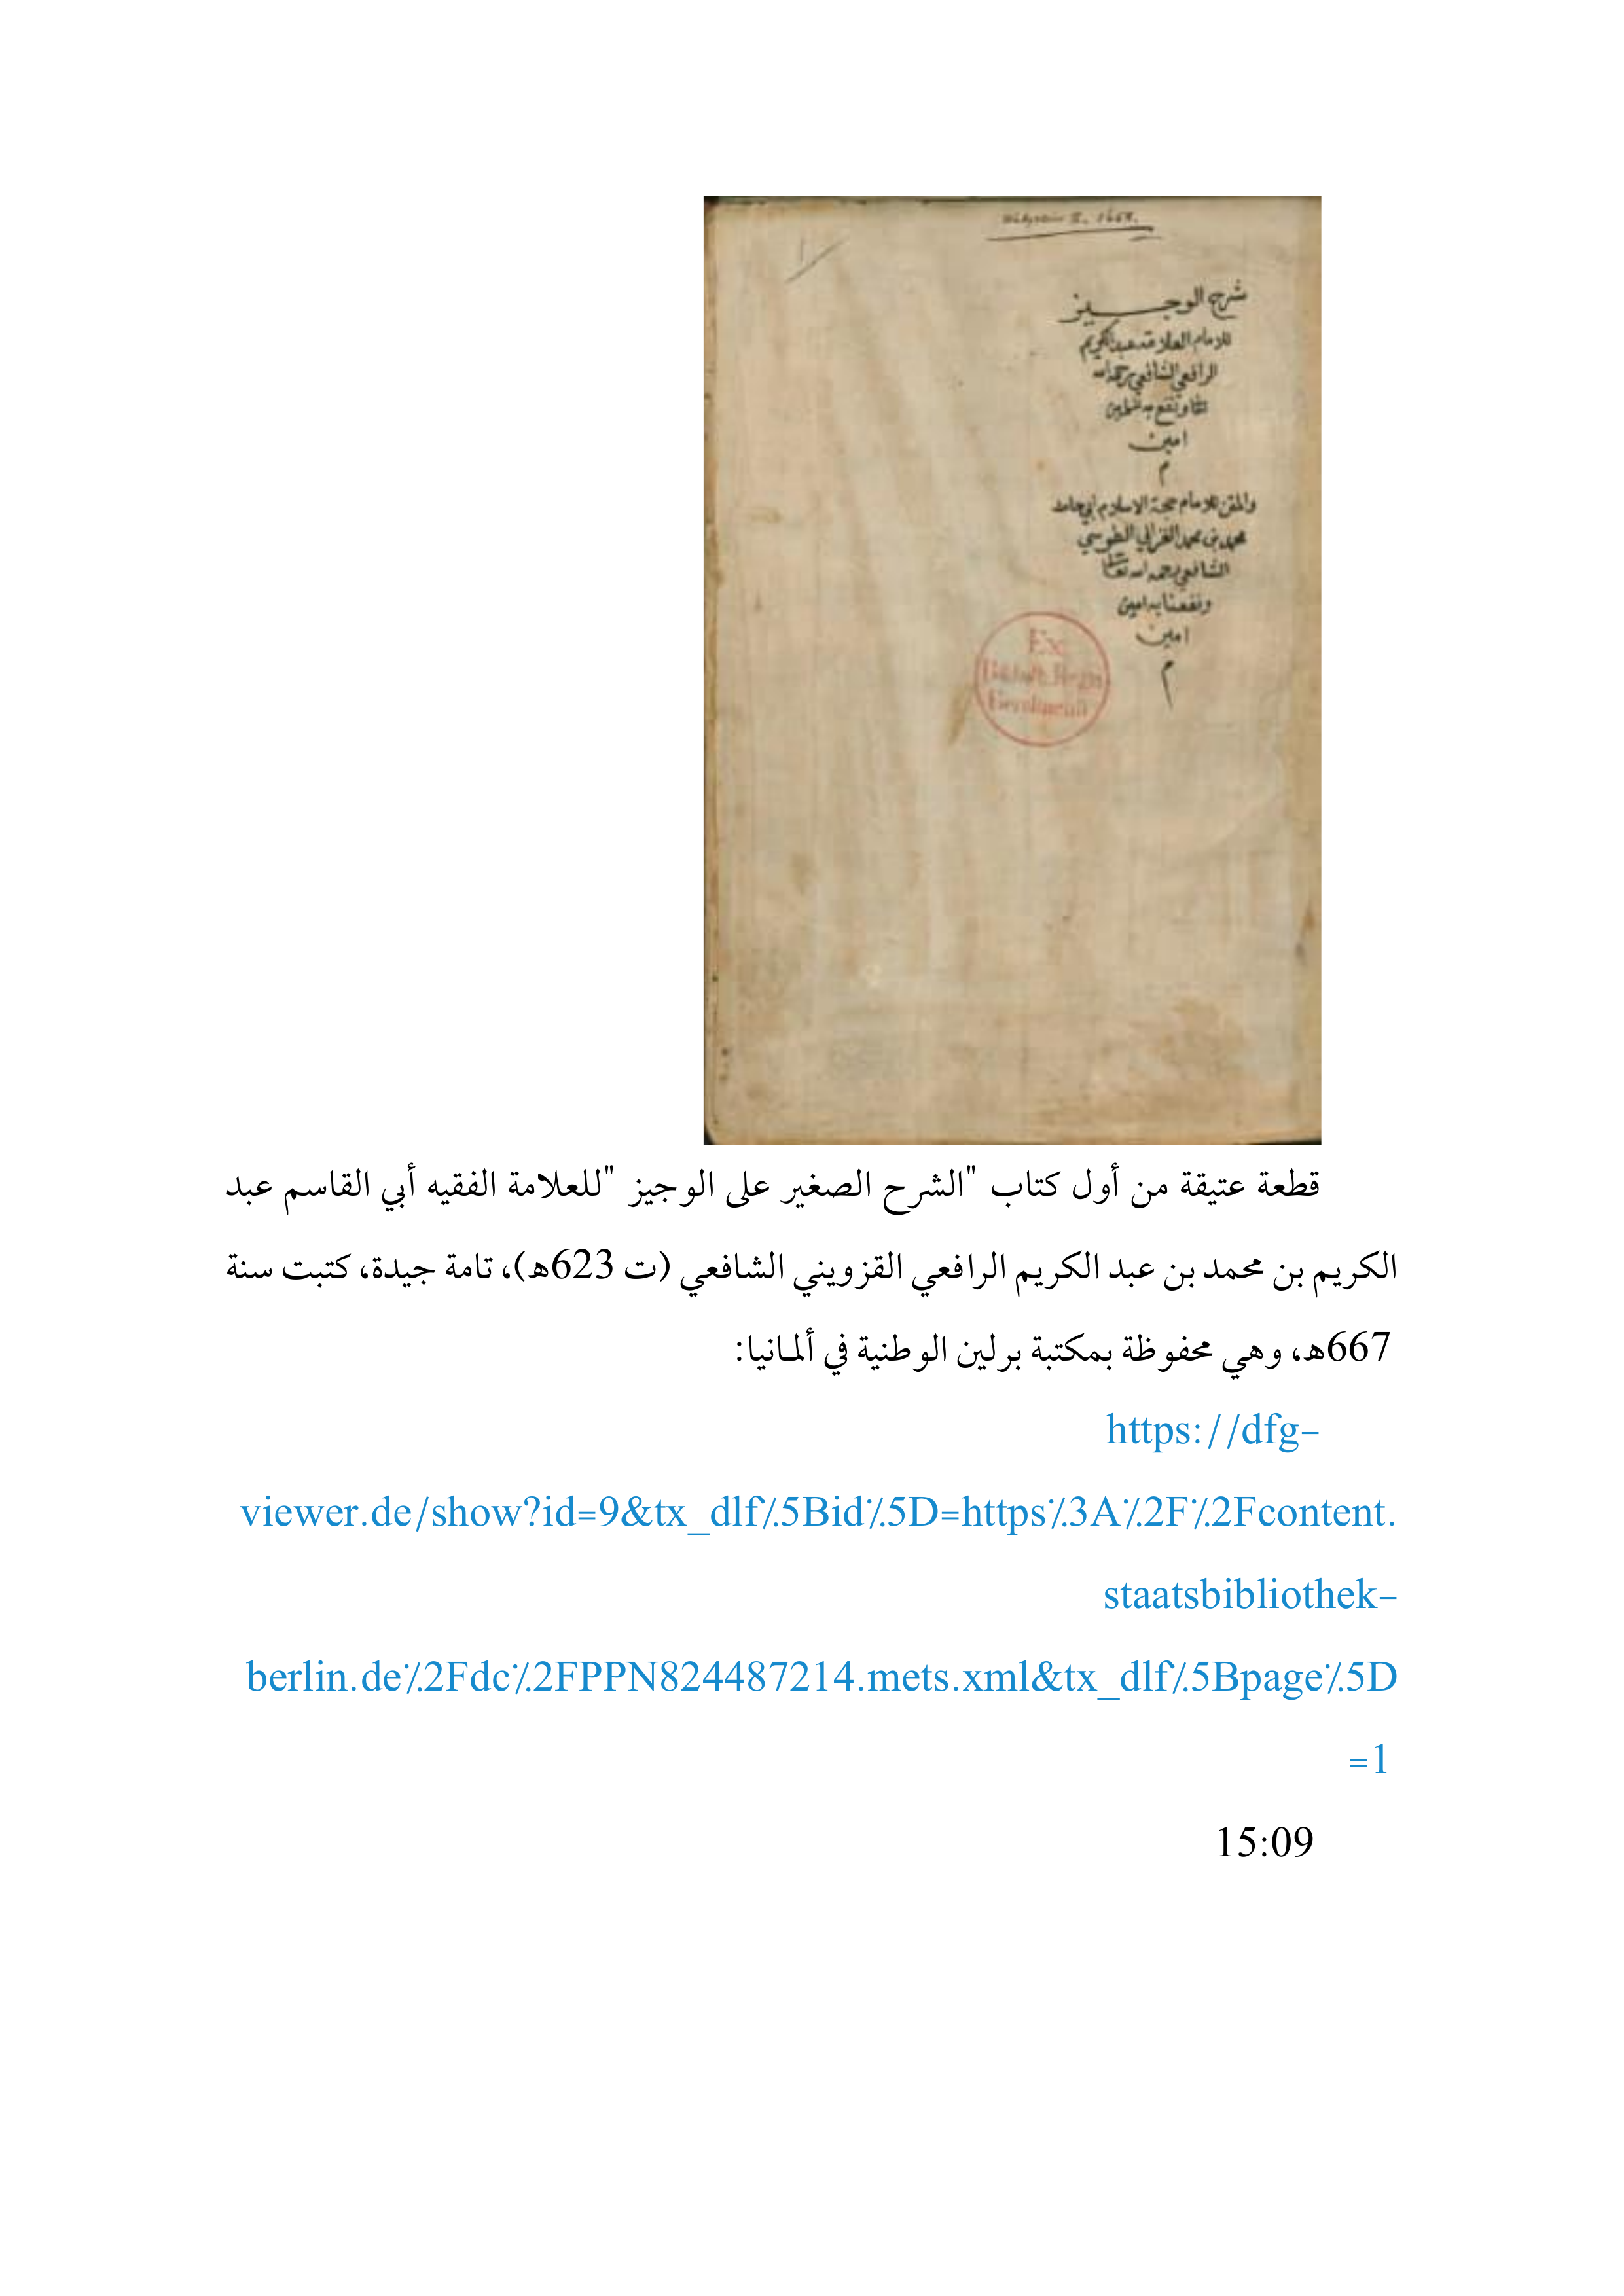 Wetzstein II. 1668.
شرح الوجيز
للامام العلامة عبد الكريم
الرافعي الشافعي رحمه الله
ونفع به
امين
م
والمتن للامام حجة الاسلام ابي حامد
محمد بن محمد الغزالي الطوسي
الشافعي رحمه الله تعالى
ونفعنا به امين
امين
م
Ex
Biblioth. Regia
Berolinensi
قطعة عتيقة من أول كتاب "الشرح الصغير على الوجيز "للعلامة الفقيه أبي القاسم عبد
الكريم بن محمد بن عبد الكريم الرافعي القزويني الشافعي (ت 623هـ)، تامة جيدة، كتبت سنة
667هـ، وهي محفوظة بمكتبة برلين الوطنية في ألمـانيا:
https://dfg-
viewer.de/show?id=9&tx_dlf%5Bid%5D=https%3A%2F%2Fcontent.
staatsbibliothek-
berlin.de%2Fdc%2FPPN824487214.mets.xml&tx_dlf%5Bpage%5D
=1
15:09